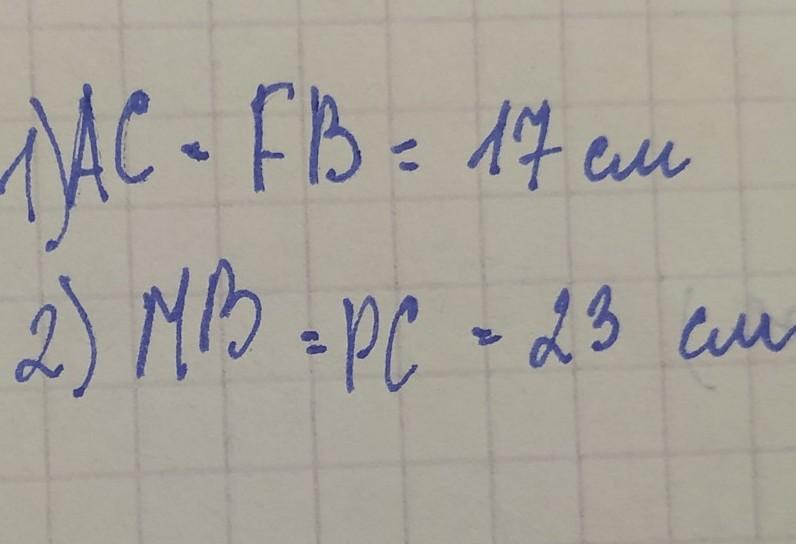 1) AC = FB = 17 см
2) MB = PC = 23 см